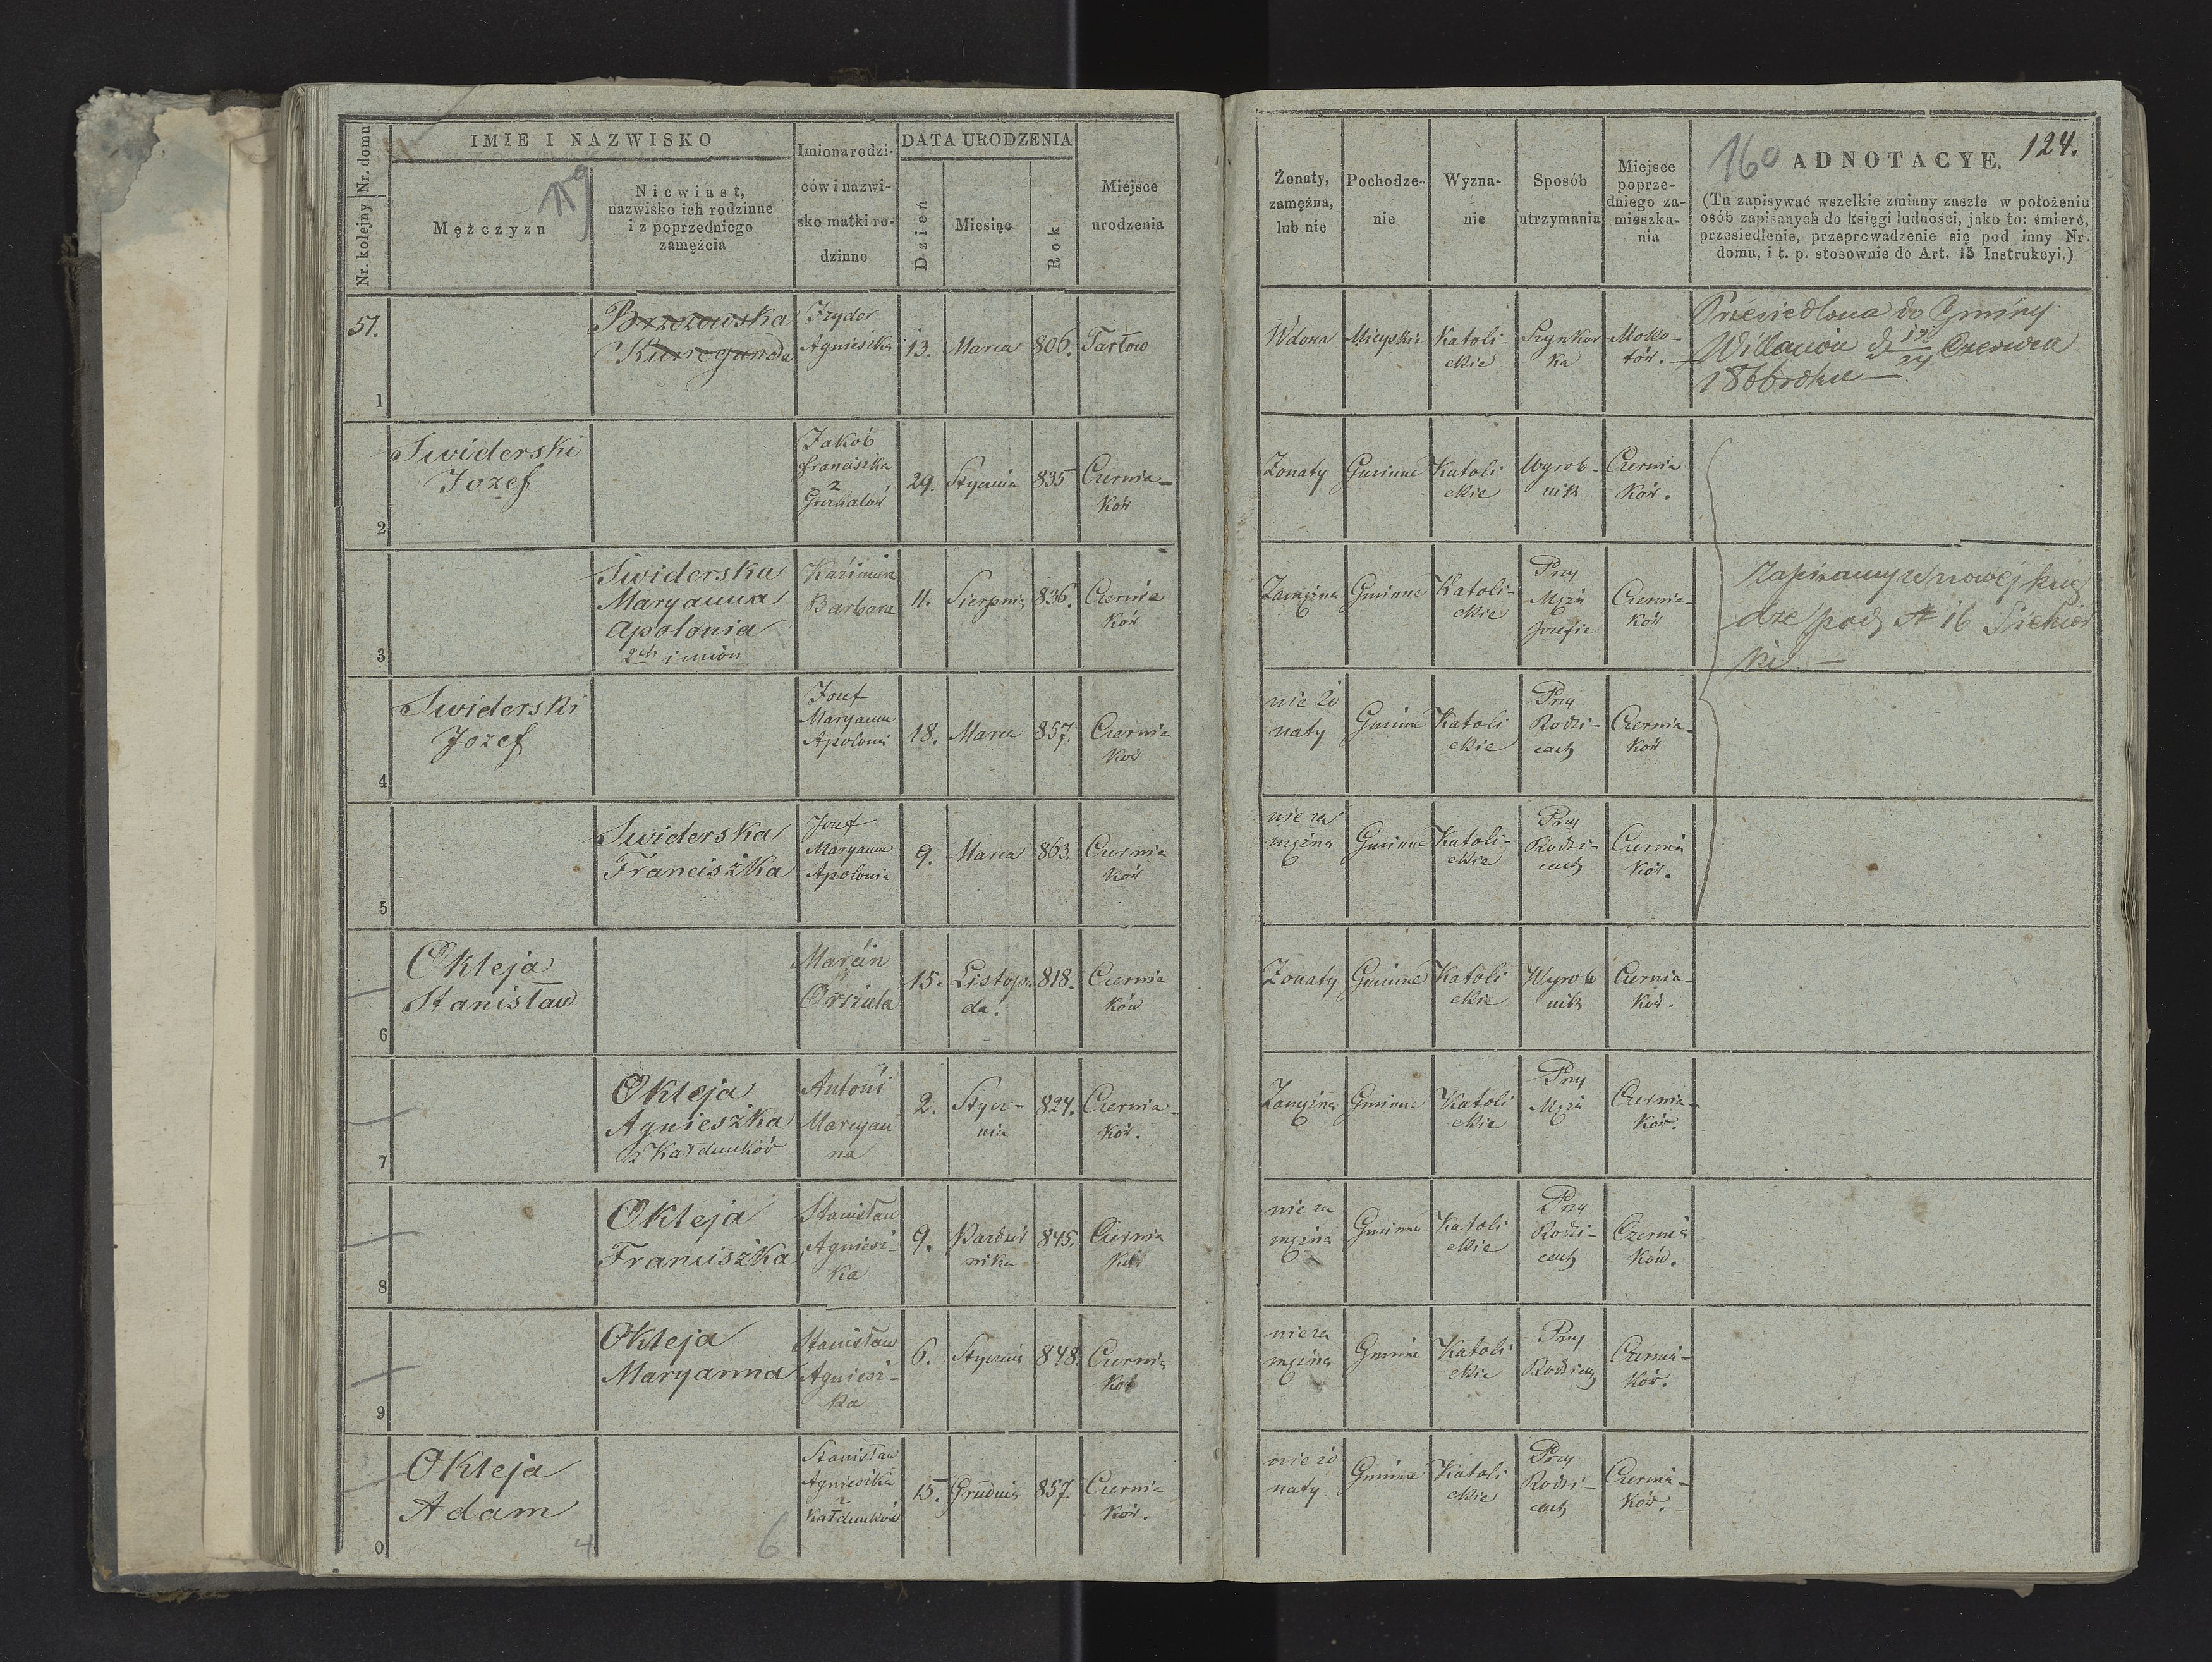 Nr. kolejny | Nr. domu
IMIE I NAZWISKO
Mężczyzn
159
Niewiast,
nazwisko ich rodzinne
i z poprzedniego
zamężcia
Imiona rodzi-
ców i nazwi-
sko matki ro-
dzinne
DATA URODZENIA
Dzień
Miesiąc
Rok
Miejsce
urodzenia
Żonaty,
zamężna,
lub nie
Pochodze-
nie
Wyzna-
nie
Sposób
utrzymania
Miejsce
poprze-
dniego za-
mieszka-
nia
160 ADNOTACYE. 124.
(Tu zapisywać wszelkie zmiany zaszłe w położeniu
osób zapisanych do księgi ludności, jako to: śmierć,
przesiedlenie, przeprowadzenie się pod inny Nr.
domu, i t. p. stosownie do Art. 15 Instrukcyi.)
57.
1
Brzozowska
Kunegunda
Izydor
Agnieszka
13.
Marca
806.
Tarłow
Wdowa
Mieyskie
Katoli-
ckie
Szynkar
ka
Moko-
tów.
Przesiedlona do Gminy
Willanów d. 12/24 Czerwca
1866 roku
2
Swiderski
Jozef
Jakób
franciszka
z
29.
Stycznia
835
Czernia-
ków
Zonaty
Gminne
Katoli
ckie
Wyrob-
nik
Czernia
ków.
3
Swiderska
Maryanna
Apolonia
2ch imion
Kazimierz
Barbara
11.
Sierpnia
836.
Czernia
ków
Zamężna
Gminne
Katoli-
ckie
Przy
Mężu
Jozefie
Czernia-
ków
Zapisany w nowej księ
dze pod N 16 Siekier
ki.
4
Swiderski
Jozef
Jozef
Maryanna
Apolonia
18.
Marca
857.
Czernia
ków
nie żo
naty
Gminne
Katoli
ckie
Przy
Rodzi-
cach
Czernia-
ków
5
Swiderska
Franciszka
Jozef
Maryanna
Apolonia
9.
Marca
863.
Czernia
ków
nie za
mężna
Gminne
Katoli-
ckie
Przy
Rodzi-
cach
Czernia
ków.
6
Okleja
Stanisław
Marcin
Orszula
15.
Listopa
da.
818.
Czernia
ków
Zonaty
Gminne
Katoli
ckie
Wyrob
nik
Czernia-
ków.
7
Okleja
Agnieszka
z Kałdunków
Antoni
Maryan
na
2.
Stycz-
nia
824.
Czernia-
ków.
Zamężna
Gminne
Katoli
ckie
Przy
Mężu
Czernia-
ków.
8
Okleja
Franciszka
Stanisław
Agniesz-
ka
9.
Pazdzier
nika
845.
Czernia
ków
nie za
mężna
Gminne
Katoli
ckie
Przy
Rodzi-
cach
Czernia
ków.
9
Okleja
Maryanna
Stanisław
Agniesz-
ka
6.
Stycznia
848.
Czernia
ków
nie za
mężna
Gminne
Katoli
ckie
Przy
Rodzicach
Czernia-
ków.
0
Okleja
Adam
Stanisław
Agnieszka
z
Kałdunków
15.
Grudnia
857
Czernia
ków.
nie żo
naty
Gminne
Katoli
ckie
Przy
Rodzi-
cach
Czernia-
ków.
4
6